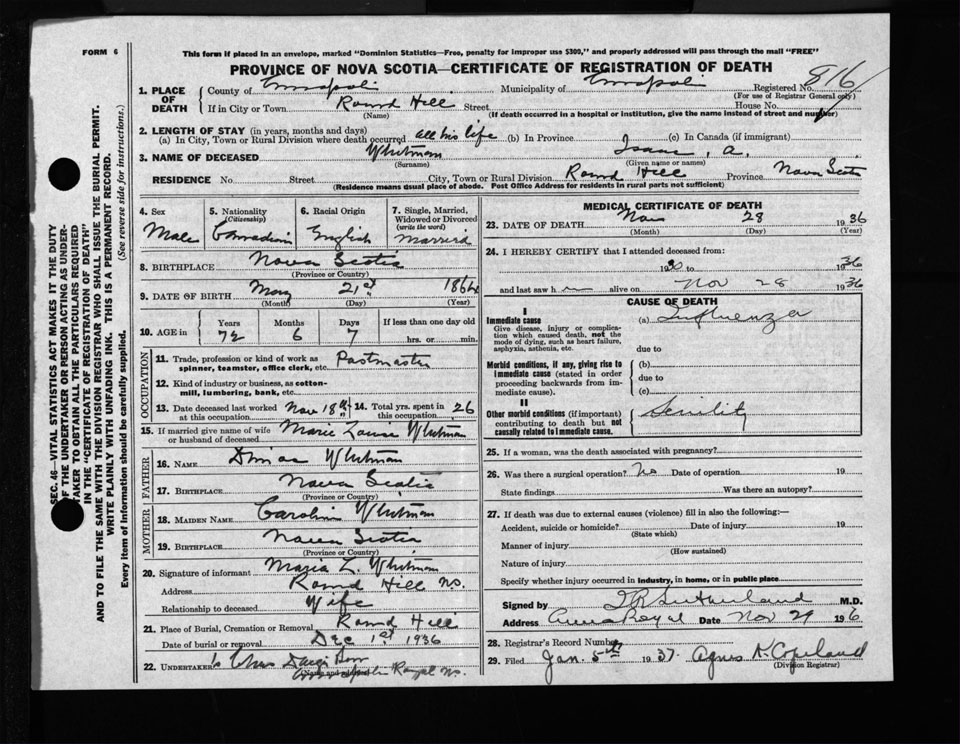 FORM 6
This form if placed in an envelope, marked "Dominion Statistics—Free, penalty for improper use $300," and properly addressed will pass through the mail "FREE"
PROVINCE OF NOVA SCOTIA—CERTIFICATE OF REGISTRATION OF DEATH
816
1. PLACE OF DEATH
County of Annapolis Municipality of Annapolis Registered No.
(For use of Registrar General only)
If in City or Town Round Hill Street House No.
(Name) (If death occurred in a hospital or institution, give the name instead of street and number)
2. LENGTH OF STAY (in years, months and days)
(a) In City, Town or Rural Division where death occurred all his life (b) In Province (c) In Canada (if immigrant)
3. NAME OF DECEASED Whitman Isaac, A.
(Surname) (Given name or names)
RESIDENCE No Street City, Town or Rural Division Round Hill Province Nova Scotia
(Residence means usual place of abode. Post Office Address for residents in rural parts not sufficient)
4. Sex Male
5. Nationality (Citizenship) Canadian
6. Racial Origin English
7. Single, Married, Widowed or Divorced (write the word) Married
8. BIRTHPLACE Nova Scotia
(Province or Country)
9. DATE OF BIRTH May 21st 1864
(Month) (Day) (Year)
10. AGE in Years Months Days If less than one day old
72 6 7 hrs. or min.
OCCUPATION
11. Trade, profession or kind of work as spinner, teamster, office clerk, etc. Postmaster
12. Kind of industry or business, as cotton-mill, lumbering, bank, etc.
13. Date deceased last worked at this occupation Nov 18th 14. Total yrs. spent in this occupation 26
15. If married give name of wife or husband of deceased Marie Louise Whitman
FATHER
16. NAME Whitman
17. BIRTHPLACE Nova Scotia
(Province or Country)
MOTHER
18. MAIDEN NAME Caroline Whitman
19. BIRTHPLACE Nova Scotia
(Province or Country)
20. Signature of informant Maria L. Whitman
Address Round Hill NS.
Relationship to deceased Wife
21. Place of Burial, Cremation or Removal Round Hill
Date of burial or removal Dec 1st 1936
22. UNDERTAKER Chas
Annapolis Royal NS.
MEDICAL CERTIFICATE OF DEATH
23. DATE OF DEATH Nov 28 1936
(Month) (Day) (Year)
24. I HEREBY CERTIFY that I attended deceased from:
1930 1936
and last saw h m alive on Nov 28 1936
CAUSE OF DEATH
I
Immediate cause (a) Influenza
Give disease, injury or complication which caused death, not the mode of dying, such as heart failure, asphyxia, asthenia, etc. due to
Morbid conditions, if any, giving rise to immediate cause (stated in order proceeding backwards from immediate cause). (b)
due to
(c)
II
Other morbid conditions (if important) contributing to death but not causally related to immediate cause. Senility
25. If a woman, was the death associated with pregnancy?
26. Was there a surgical operation? No Date of operation 19
State findings Was there an autopsy?
27. If death was due to external causes (violence) fill in also the following:—
Accident, suicide or homicide? Date of injury 19
(State which)
Manner of injury
(How sustained)
Nature of injury
Specify whether injury occurred in industry, in home, or in public place
Signed by Sutherland M.D.
Address Anna Royal Date Nov 29 1936
28. Registrar's Record Number
29. Filed Jan. 5th 1937. Agnes K Copeland
(Division Registrar)
SEC. 46—VITAL STATISTICS ACT MAKES IT THE DUTY
OF THE UNDERTAKER OR PERSON ACTING AS UNDER-
TAKER TO OBTAIN ALL THE PARTICULARS REQUIRED
IN THE "CERTIFICATE OF REGISTRATION OF DEATH"
AND TO FILE THE SAME WITH THE DIVISION REGISTRAR WHO SHALL ISSUE THE BURIAL PERMIT.
WRITE PLAINLY WITH UNFADING INK. THIS IS A PERMANENT RECORD.
Every item of information should be carefully supplied. (See reverse side for instructions.)